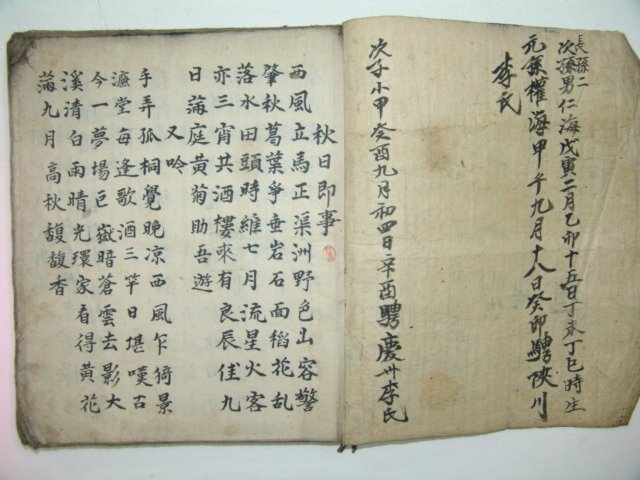 長孫二
次孫男仁海戊寅二月乙卯十五日丁未丁巳時生
元孫權海甲午九月十八日癸卯騁陜川
李氏
次子小甲癸酉九月初四日辛酉騁慶州李氏
秋日即事
西風立馬正渠洲野色山容警
肇秋葛葉爭垂岩石面稻花乱
落水田頭時維七月流星火客
亦三宵共酒樓來有良辰佳九
日滿庭黄菊助吾遊
又吟
手弄孤桐覺晩凉西風乍猗景
濂堂每逢歌酒三竿日堪嘆古
今一夢場巨嶽暗蒼雲去影大
溪清白雨晴光環家看得黄花
滿九月高秋馥馥香